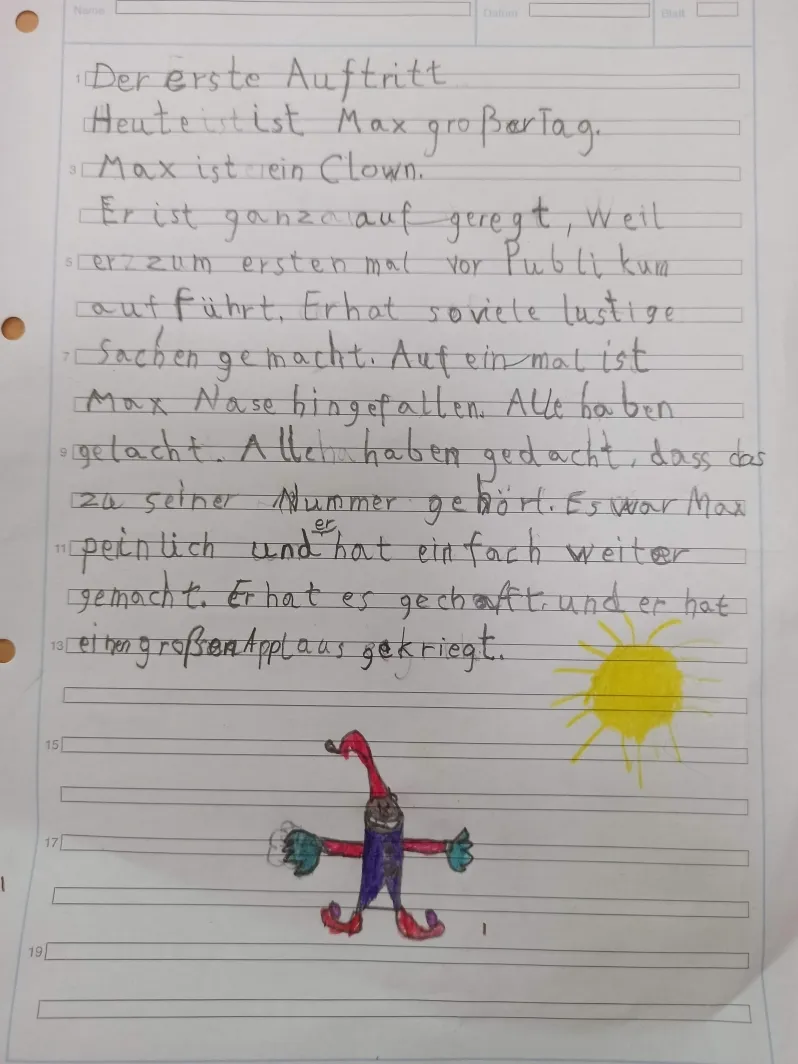 Name Datum Blatt
1 Der erste Auftritt
Heute ist ist Max großer Tag.
3 Max ist ein Clown.
Er ist ganz auf geregt, weil
5 er zum ersten mal vor Publikum
auf führt. Er hat soviele lustige
7 Sachen gemacht. Auf ein mal ist
Max Nase hingefallen. Alle haben
9 gelacht. Alle haben gedacht, dass das
zu seiner Nummer gehört. Es war Max
er
11 peinlich und hat einfach weiter
gemacht. Er hat es geschafft. und er hat
13 einen großen Applaus gekriegt.
15
17
19